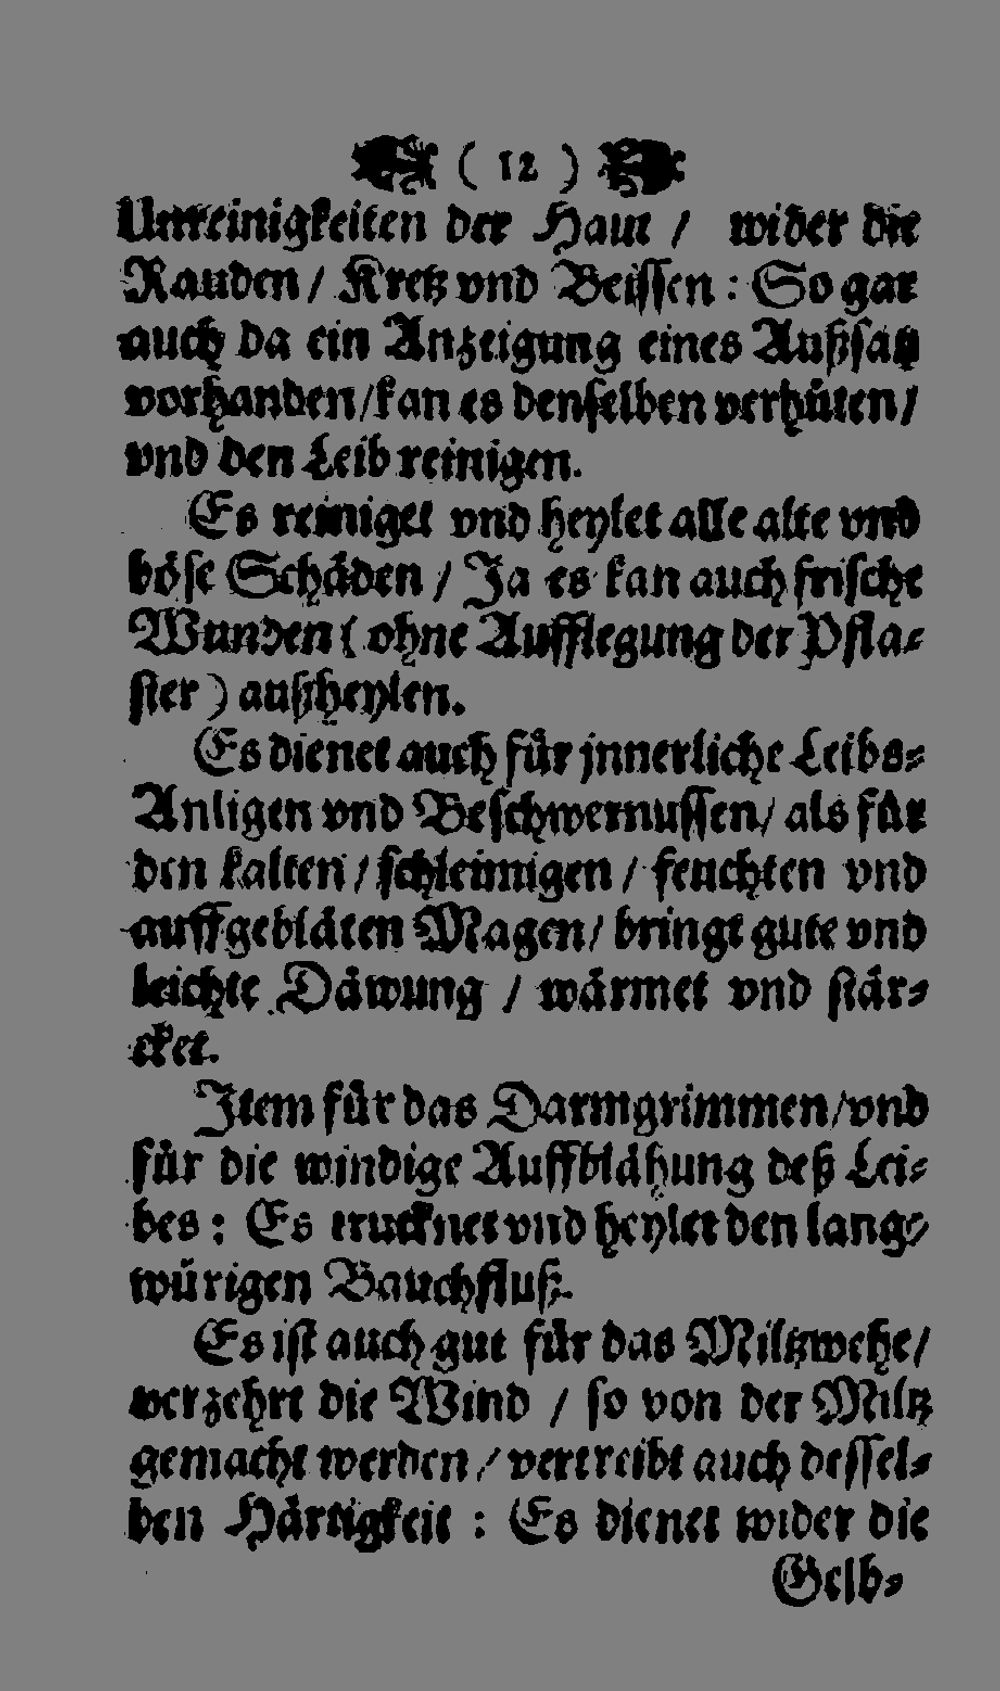 ( 12 )
Unreinigkeiten der Haut / wider die
Rauden / Kretz vnd Beissen : So gar
auch da ein Anzeigung eines Außsatz
vorhanden / kan es denselben verhüten /
vnd den Leib reinigen.
Es reiniget vnd heylet alle alte vnd
böse Schäden / Ja es kan auch frische
Wunden ( ohne Aufflegung der Pfla⸗
ster ) außheylen.
Es dienet auch für jnnerliche Leibs⸗
Anligen vnd Beschwernussen / als für
den kalten / schleimigen / feuchten vnd
auffgebläten Magen / bringt gute vnd
leichte Däwung / wärmet vnd stär⸗
cket.
Item für das Darmgrimmen / vnd
für die windige Auffblähung deß Lei⸗
bes : Es trucknet vnd heylet den lang⸗
würigen Bauchfluß.
Es ist auch gut für das Miltzwehe /
verzehrt die Wind / so von der Miltz
gemacht werden / vertreibt auch dessel⸗
ben Härtigkeit : Es dienet wider die
Gelb⸗